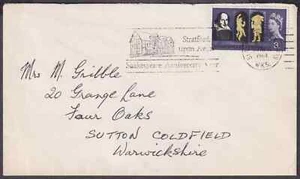 Stratford
upon Avon
Shakespeare Anniversary Year
3D
Mrs M. Gribble
20 Grange Lane
Four Oaks
SUTTON COLDFIELD
Warwickshire